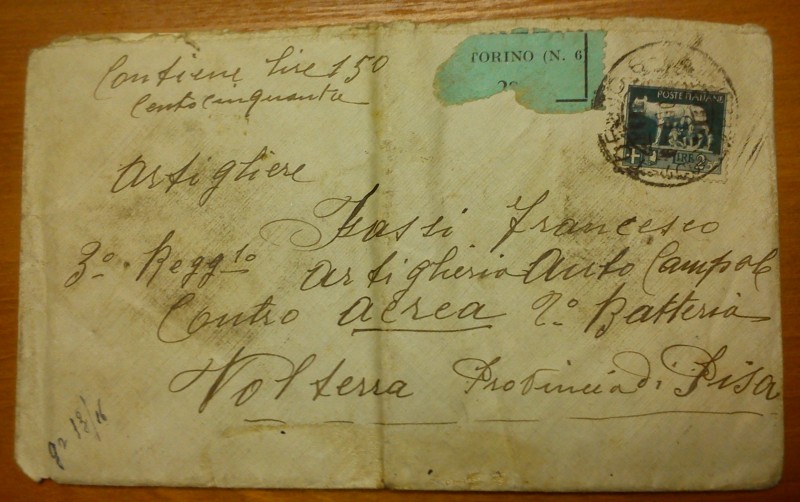 Contiene lire 150
Centocinquanta
TORINO (N. 6
POSTE ITALIANE
LIRE
Artigliere
Francesco
3º Reggto
Artiglieria Auto Campale
Contro Aerea 2º Batteria
Volterra Provincia di Pisa